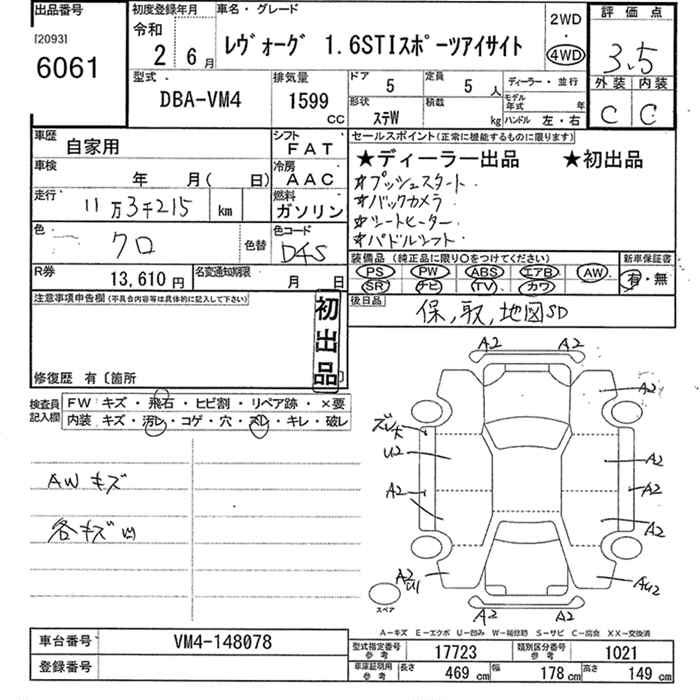 出品番号
[2093]
6061
初度登録年月
令和
2 6月
車名・グレード
レヴォーグ 1.6STIスポーツアイサイト
2WD
・
4WD
評価点
3.5
外装 内装
C C
型式
DBA-VM4
排気量
1599
CC
ドア
5
定員
5 人
形状
ステW
積載
kg
ディーラー・並行
モデル年式 年
ハンドル 左・右
車歴
自家用
シフト
FAT
車検
年 月( 日)
冷房
AAC
走行
11万3千215 km
燃料
ガソリン
色
クロ
色替
色コード
D4S
R券
13,610円
名変通知期限
月 日
セールスポイント(正常に機能するものに限ります)
★ディーラー出品 ★初出品
☆プッシュスタート.
☆バックカメラ.
☆シートヒーター.
☆パドルシフト.
装備品 (純正品に限り○をつけてください)
PS PW ABS エアB AW
SR ナビ TV カワ
新車保証書
有・無
後日品
保,取,地図SD
注意事項申告欄(不具合内容等は具体的に記入して下さい)
初出品
修復歴 有〔箇所
検査員記入欄
FW キズ・飛石・ヒビ割・リペア跡・×要
内装 キズ・汚レ・コゲ・穴・スレ・キレ・破レ
AWキズ
各キズ凹
A2 A2
A2
ズレ大
U2
A2
A2 A2
A2
A2
U1
AU2
A2 A2
スペア
A-キズ E-エクボ U-凹み W-補修跡 S-サビ C-腐食 XX-交換済
車台番号
VM4-148078
登録番号
型式指定番号 参考
17723
類別区分番号 参考
1021
車庫証明用 参考
長さ 469 cm
幅 178 cm
高さ 149 cm